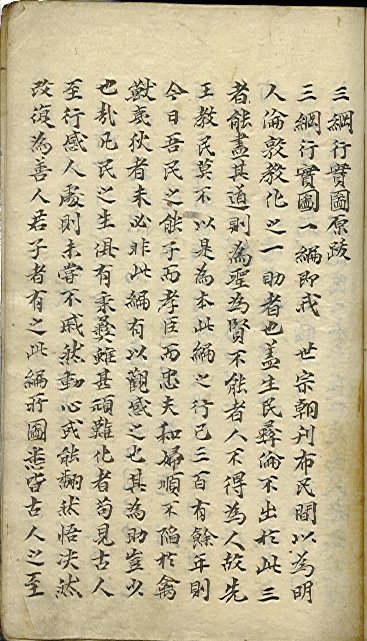 三綱行實圖原跋
三綱行實圖一編即我 世宗朝刊布民間以為明
人倫敦敎化之一助者也盖生民彛倫不出於此三
者能盡其道則為聖為賢不能者人不得為人故先
王敎民莫不以是為本此編之行已三百有餘年則
今日吾民之能子而孝臣而忠夫和婦順不陷於禽
獸夷狄者未必非此編有以觀感之也其為助豈少
也哉凡民之生俱有秉彛雖甚頑難化者苟見古人
至行感人處則未甞不戚然動心或能翻然悟決然
改復為善人君子者有之此編所圖悉皆古人之至